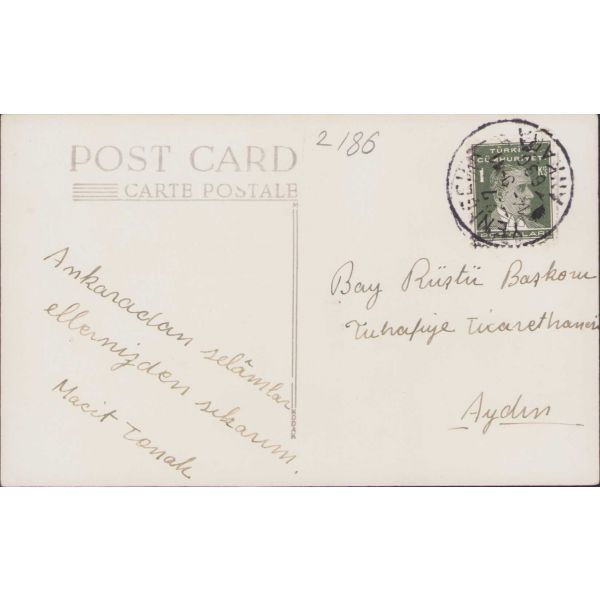 2186
POST CARD
CARTE POSTALE
TÜRKİYE
CÜMHURİYETİ
1 KŞ
Ankaradan selâmlar
ellernizden sıkarım.
Macit Tonak
KODAK
Bay Rüştü Başkom
Tuhafiye Ticarethanesi
Aydın